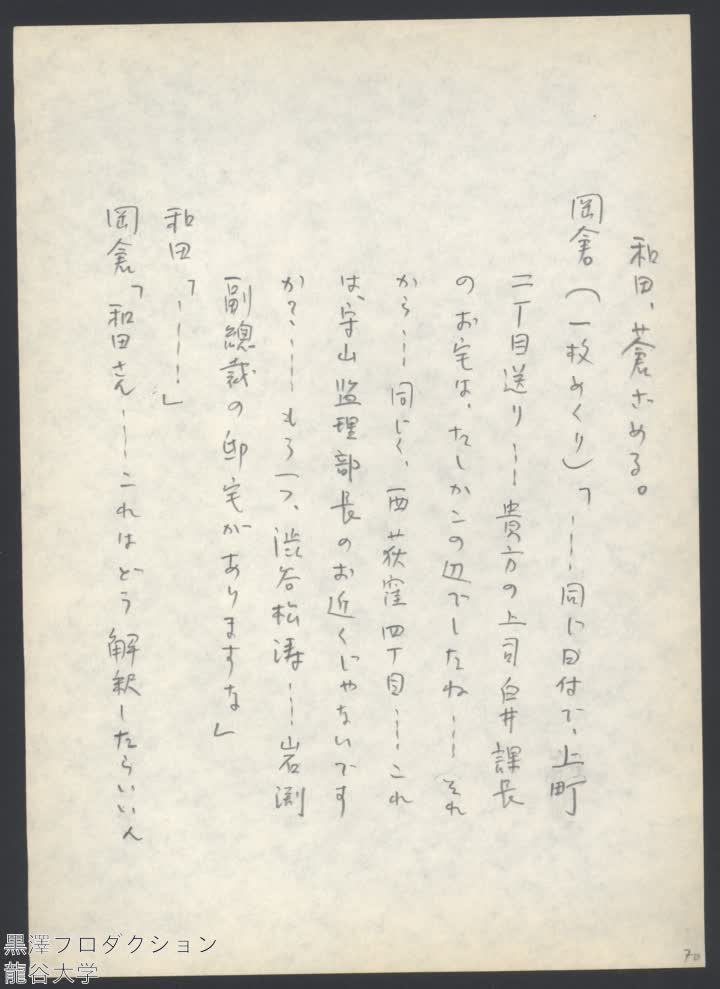 和田、蒼ざめる。
岡倉（一枚めくり）「……同じ日付で、上町
二丁目送り……貴方の上司白井課長
のお宅は、たしかこの辺でしたね……それ
から……同じく、西荻窪四丁目……これ
は、守山監理部長のお近くじゃないです
か？……もう一つ、渋谷松濤……岩渕
副總裁の邸宅がありますな」
和田「………」
岡倉「和田さん……これはどう解釈したらいいん
70
黒澤プロダクション
龍谷大学